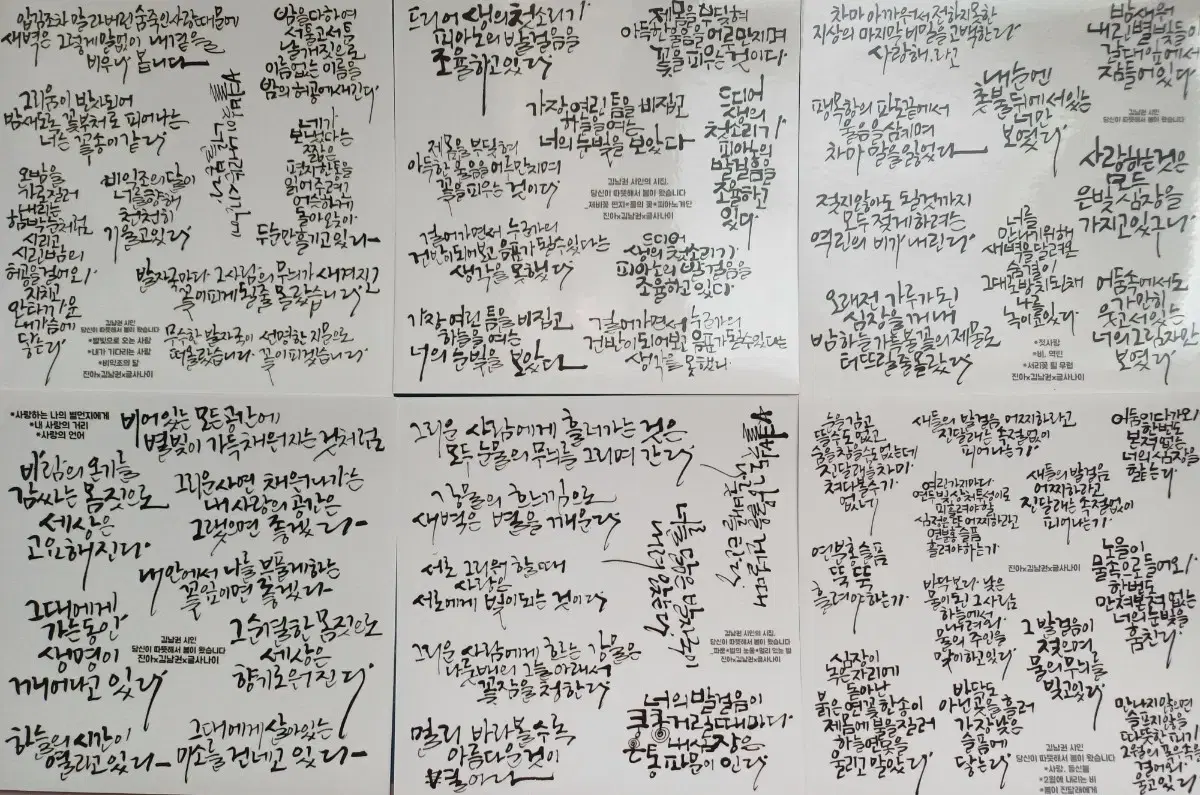 새벽은 그렇게 말없이 내 곁을
비우나 봅니다
그리움이 발화되어
밤새도록 꽃부처로 피어나는
너는 꽃송이 같다
오방을
가로질러
내리는
함박눈처럼
시리고
시린 밤의
허공을 걸어와
지피고
안타까운
내 가슴에
닿는다
비익조의 달이
너를 향해
천천히
기울고 있다
발자국마다 그 사람의 무늬가 새겨지고
꽃이 피게 될 줄 몰랐습니다
무수한 발자국이 선명한 지문으로
떠올랐습니다 꽃이 피겠습니다
김남권 시인
당신이 따뜻해서 봄이 왔습니다
*별빛으로 오는 사람
*내가 기다리는 사람
*비익조의 달
진아x김남권x글사나이
밤을 다하여
서툴고 서툰
날갯짓으로
이름 없는 이름을
밤의 허공에 새긴다
네가
보낸다는
짧은
편지 한 통을
읽어주려고
어슥하게
돌아앉아
두 눈만 옮기고 있다
드디어 생의 첫소리가
피아노의 발걸음을
조율하고 있다
제 몸을 부딪혀
아득한 울음을 어루만지며
꽃을 피우는 것이다
가장 여린 틈을 비집고
하늘을 여는
너의 눈빛을 보았다
제 몸을 부딪혀
아득한 울음을 어루만지며
꽃을 피우는 것이다
드디어
생의
첫소리가
피아노의
발걸음을
조율하고
있다
김남권 시인의 시집,
당신이 따뜻해서 봄이 왔습니다
_제비꽃 편지*물의 꽃*피아노계단
진아x김남권x글사나이
걸어가면서 누군가의
건반이 되어보고 음표가 될 수 있다는
생각을 못했다
드디어
생의 첫소리가
피아노의 발걸음을
조율하고 있다
가장 여린 틈을 비집고
하늘을 여는
너의 눈빛을 보았다
걸어가면서 누군가의
건반이 되어보고 음표가 될 수 있다는
생각을 못했다
차마 아까워서 전하지 못한
지상의 마지막 비밀을 고백한다
사랑해, 라고
밤새워
내린 별빛들이
갈대 앞에서
잠들어 있다
내 눈엔
촛불 뒤에 서 있는
너만
보였다
김남권 시인
당신이 따뜻해서 봄이 왔습니다
팽목항의 파도 끝에서
울음을 삼키며
차마 말을 잃었다
사랑하는 것은
모두
은빛 심장을
가지고 있구나
젖지 않아도 될 것까지
모두 젖게 하려는
역린의 비가 내린다
너를
만나기 위해
새벽을 달려온
숨결이
그대로 방치된 채
나를
녹이고 있다
어둠 속에서도
가만히
웃고 서 있는
너의 그림자만
보였다
오래전 가루가 된
심장을 꺼내
밤하늘 가득 불꽃의 제물로
터뜨릴 줄 몰랐다
*첫사랑
*비, 역린
*서리꽃 필 무렵
진아x김남권x글사나이
*사랑하는 나의 별먼지에게
*내 사랑의 거리
*사랑의 언어
비어있는 모든 공간에
별빛이 가득 채워지는 것처럼
바람의 온기를
감싸는 몸짓으로
세상은
고요해진다
그리운 사연 채워나가는
내 사랑의 공간은
그랬으면 좋겠다
내 안에서 나를 부풀게 하는
꽃잎이면 좋겠다
그대에게
가는 동안
생명이
깨어나고 있다
김남권 시인
당신이 따뜻해서 봄이 왔습니다
진아x김남권x글사나이
그 순결한 몸짓으로
세상은
향기로워진다
하늘의 시간이
열리고 있다
그대에게 살아있는
미소를 건네고 있다
그리운 사람에게 흘러가는 것은
모두 눈물의 무늬를 그리며 간다
강물의 한 끼로
새벽은 별을 깨운다
서로 그리워할 때
사랑은
서로에게 벽이 되는 것이다
그리운 사람에게 하는 강물은
나룻배의 그늘 아래서
꽃잠을 청한다
멀리 바라볼수록
아름다운 것이
별이다
너를 닮은 발자국이
내리고 있는다
김남권 시인의 시집,
당신이 따뜻해서 봄이 왔습니다
_파문*빛의 눈물*멀리 있는 별
진아x김남권x글사나이
너의 발걸음이
쿵쿵거릴 때마다
온통 내 심장은
파문이 인다
눈을 감고
뜰 수도 없고
숨을 참을 순 없는데
진달래는 차마
쳐다볼 수가
없네
새들의 발걸음 어찌하라고
진달래는 속절없이
피어나는가
어둠 잊다가 와
한 번도
본 적 없는
너의 심장을
핥는다
여린 가지마다
연둣빛 상처투성이로
피 흘려야 할
심정은 또 어찌하라고
연분홍 슬픔
흘려야 하는가
새들의 발걸음
어찌하라고
진달래는 속절없이
피어나는가
연분홍 슬픔
뚝뚝
흘려야 하는가
진아x김남권x글사나이
노을이
물속으로 들어와
한 번도
만져본 적 없는
너의 눈빛을
훔친다
바닥보다 낮은
물이 된 그 사람
하늘에서
내려와
물의 주인을
맞이하고 있다
그 발걸음이
젖으며
몸의 무늬를
빚고 있다
심장이
녹은 자리에
돋아난
붉은 연꽃 한 송이
제 몸에 불을 질러
하늘 연못을
울리고 말았다
바닥도
아닌 곳을 흘러
가장 낮은
슬픔에
닿는다
김남권 시인
당신이 따뜻해서 봄이 왔습니다
*사랑, 등신불
*2월에 내리는 비
*봄이 진달래에게
만나지 않으면
슬프지 않을
따뜻한 피가
2월의 꽃을 쪽으로
걸어와
울고 있다